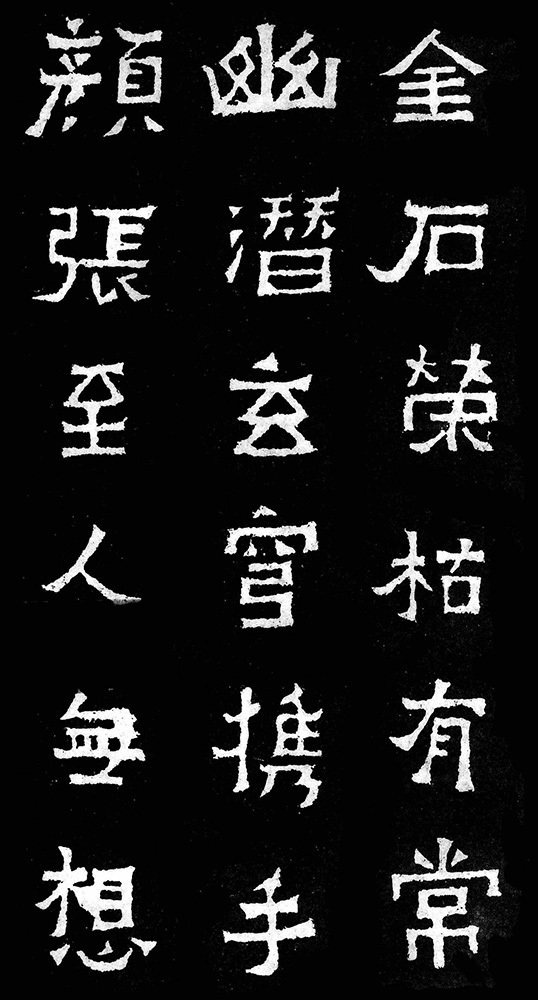 金石榮枯有常
幽潛玄穹携手
顏張至人無想